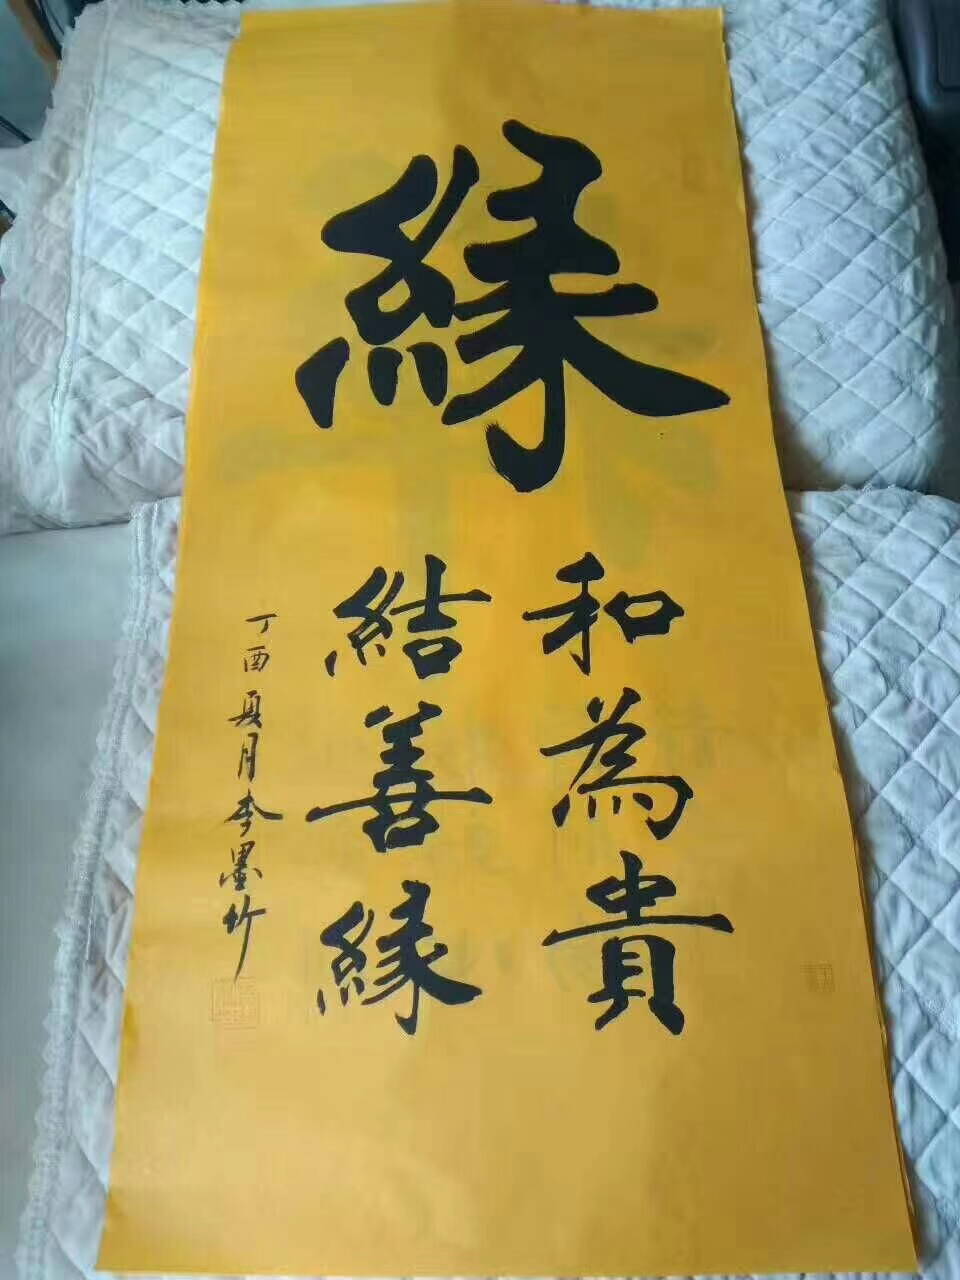 緣
和為貴
結善緣
丁酉夏月李墨竹